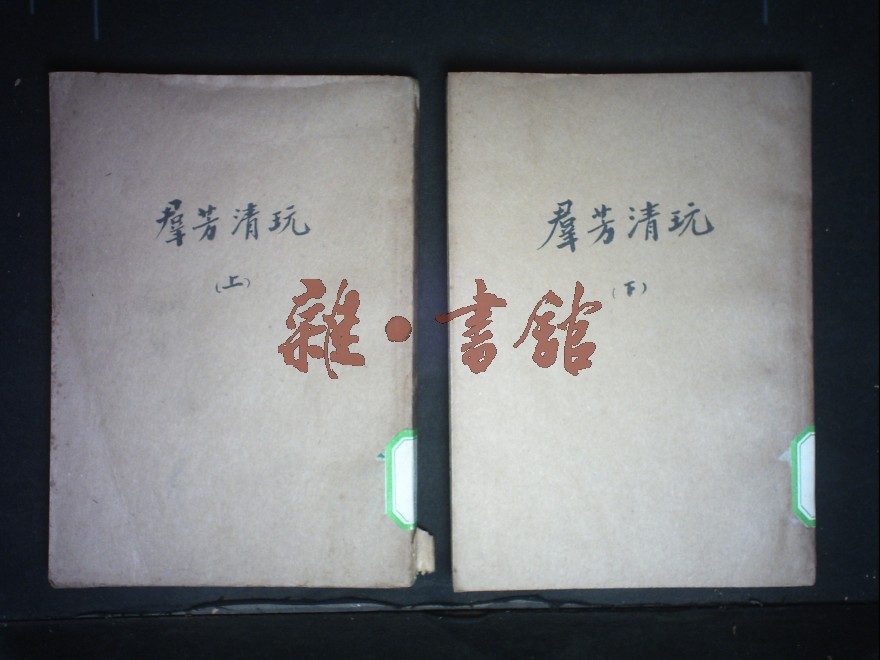 羣芳清玩
(上)
羣芳清玩
(下)
雜·書館